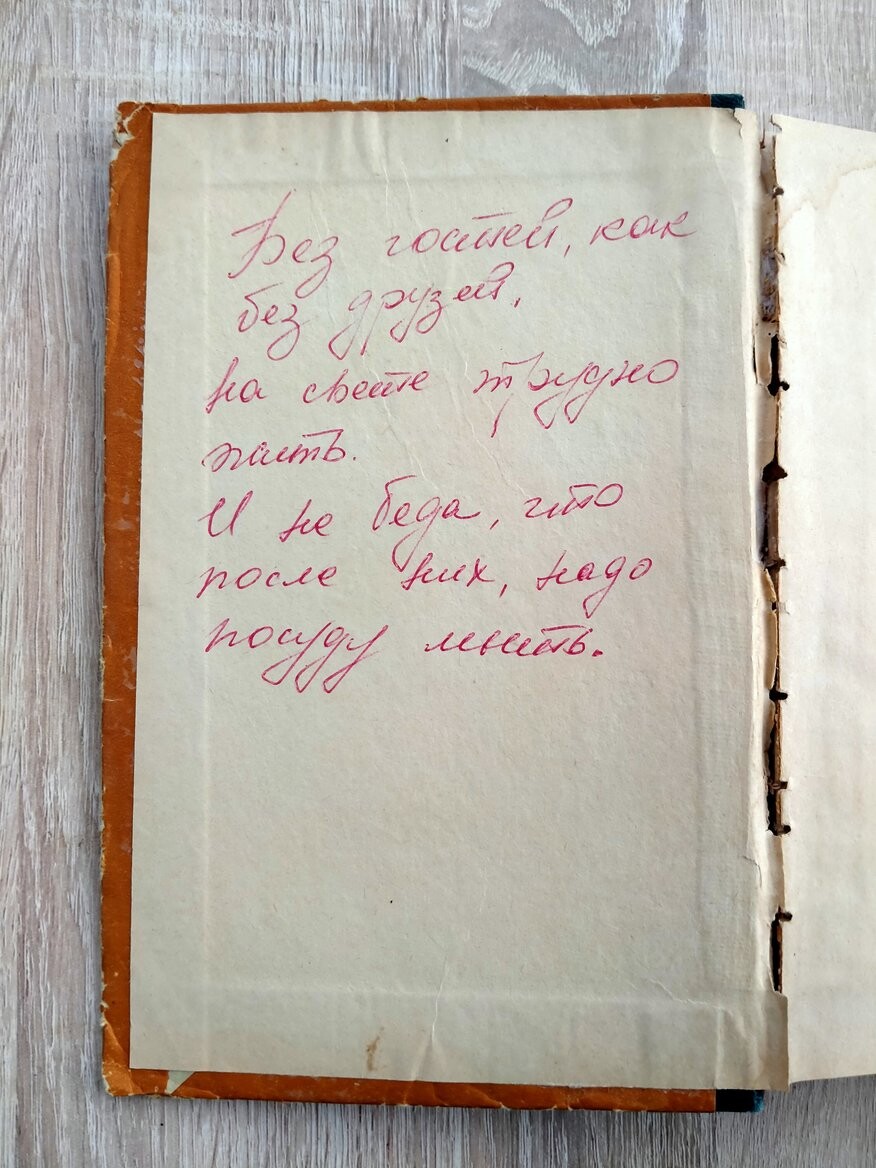 Без гостей, как
без друзей,
на свете трудно
жить.
И не беда, что
после них, надо
посуду мыть.